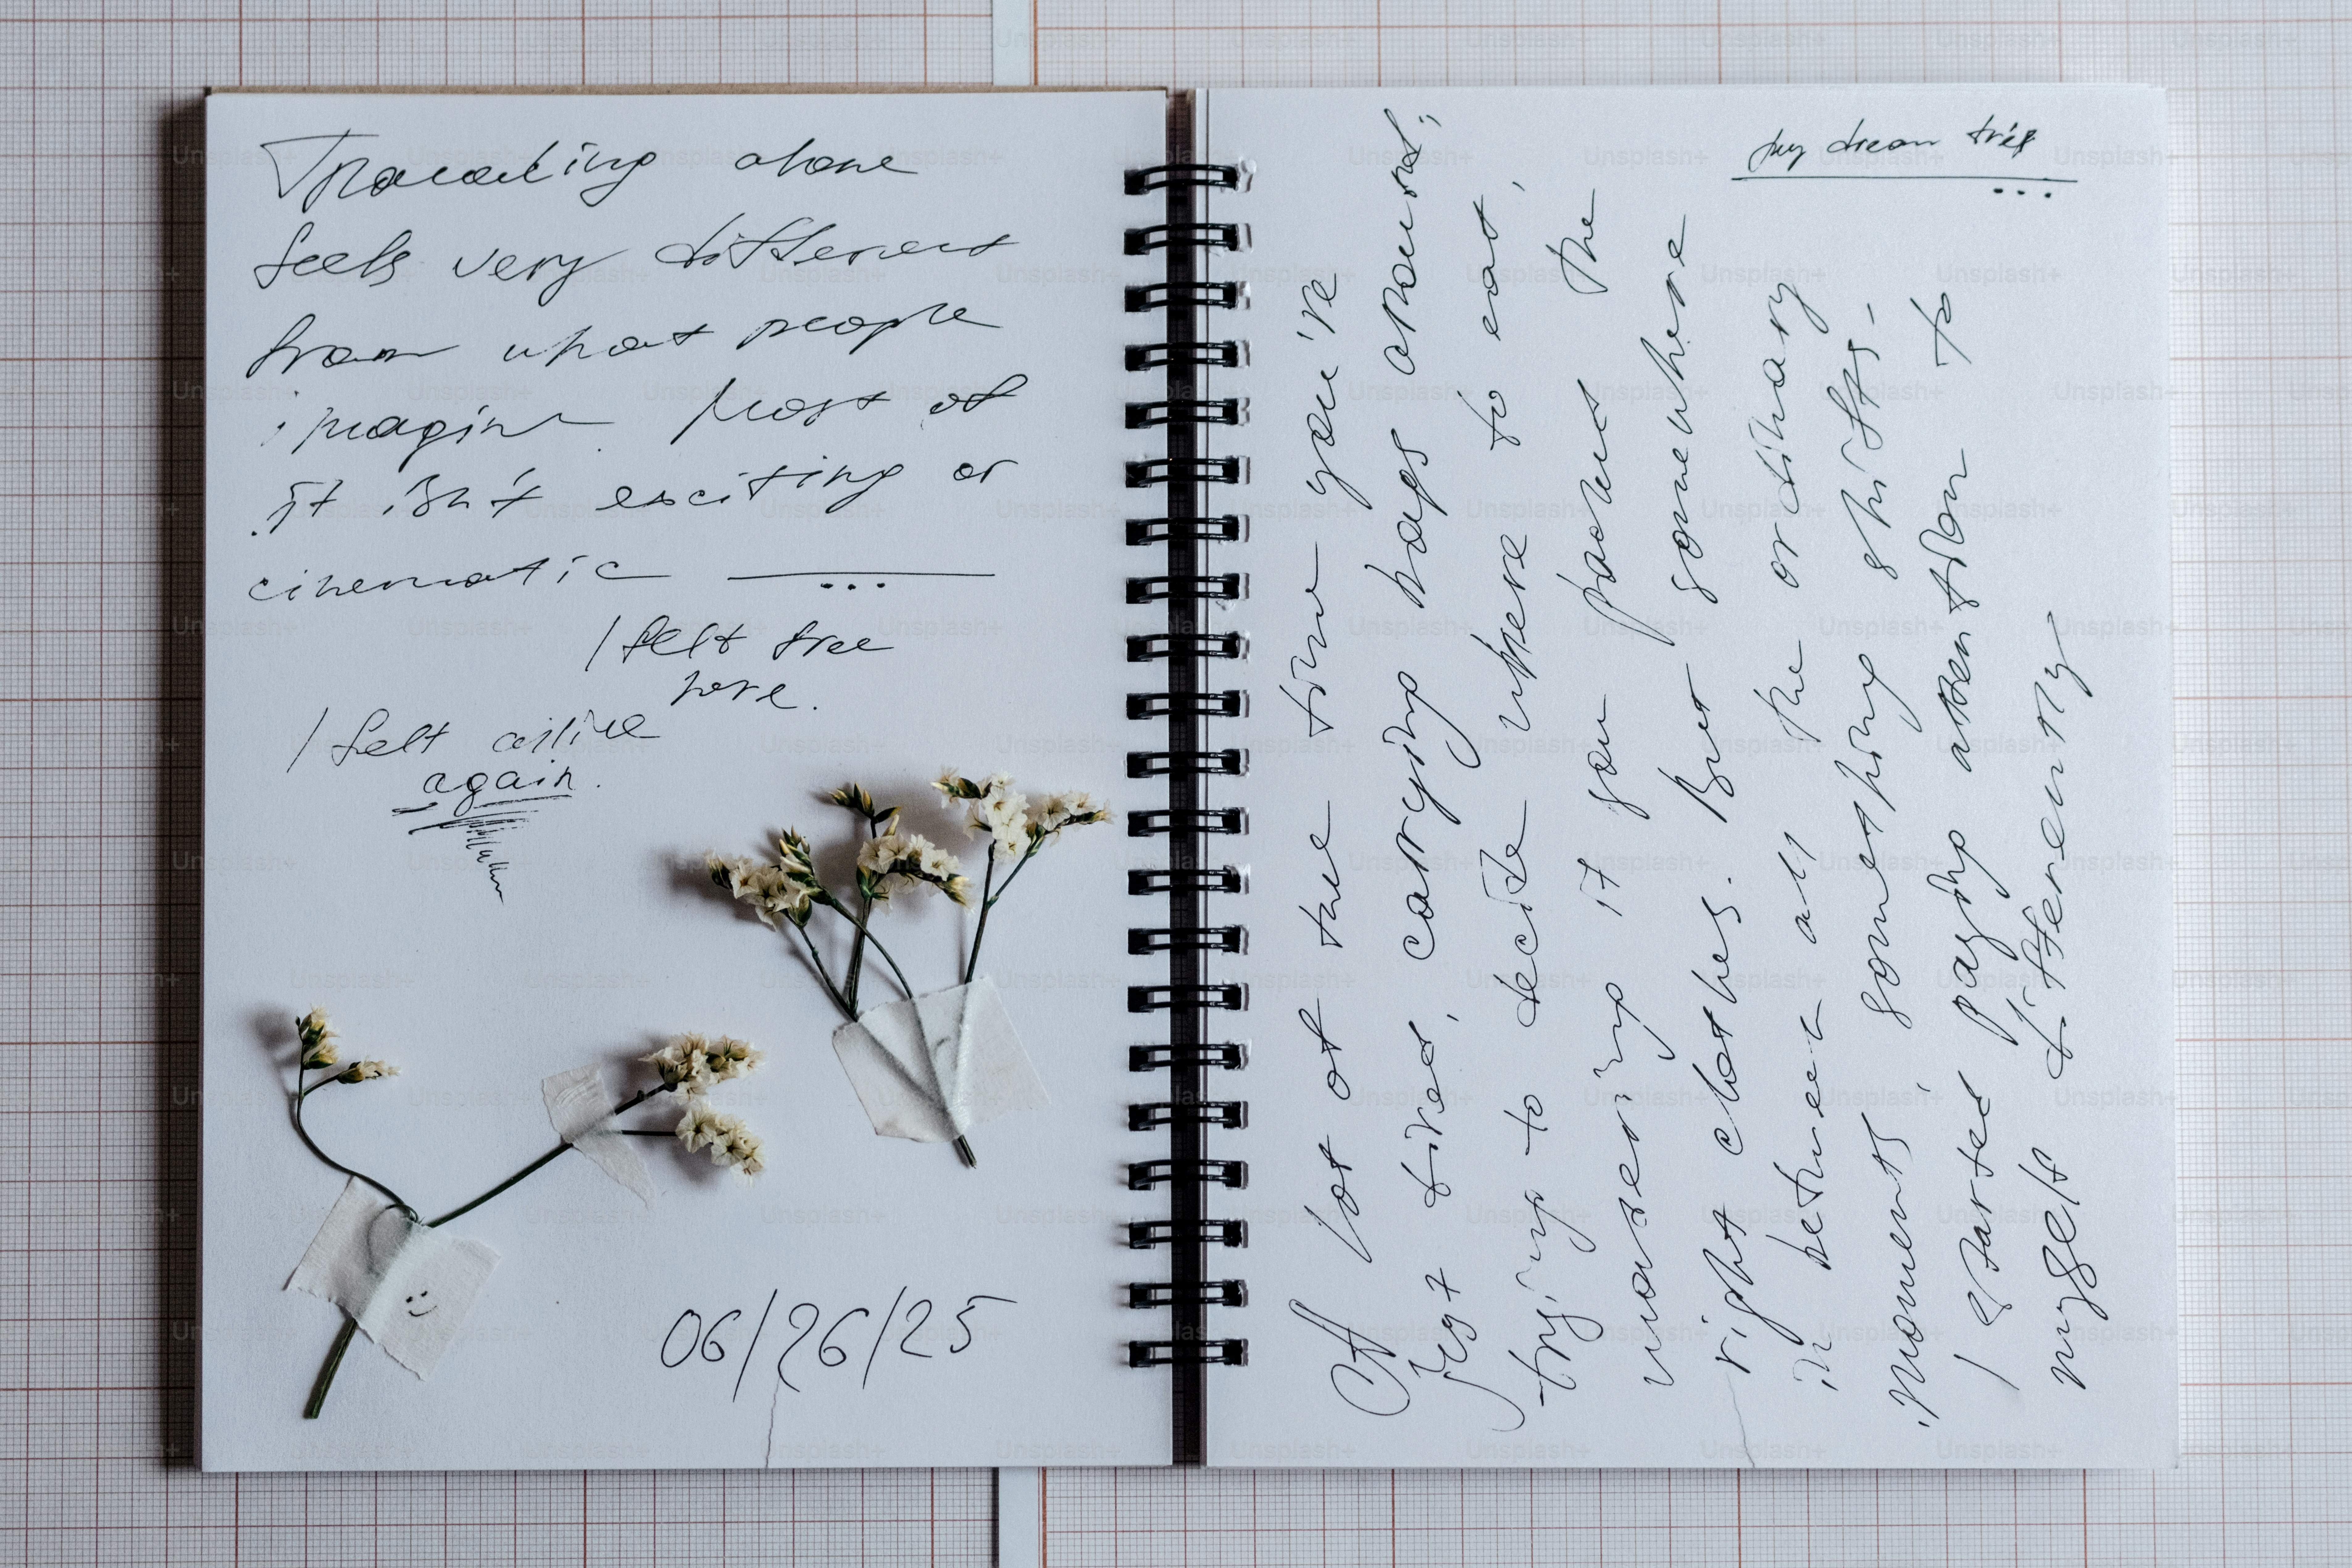 Traveling alone
feels very different
from what people
imagine. Most of
it isn't exciting or
cinematic ...
I felt free
here.
I felt alive
again.
06/26/25
my dream trip
...
A lot of the time you're
just tired, carrying bags around,
trying to decide where to eat,
wondering if you packed the
right clothes. But somewhere
in between all the ordinary
moments, something shifts.
I started paying attention to
myself differently
Unsplash+